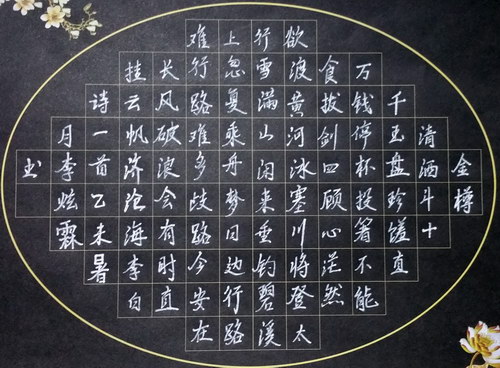 金樽
清酒斗十
千玉盘珍馐直
万钱停杯投箸不能
食拔剑四顾心茫然
欲渡黄河冰塞川将登太
行雪满山闲来垂钓碧溪
上忽复乘舟梦日边行路
难行路难多歧路今安在
长风破浪会有时直
挂云帆济沧海李白
诗一首乙未暑
月李炫霖
书